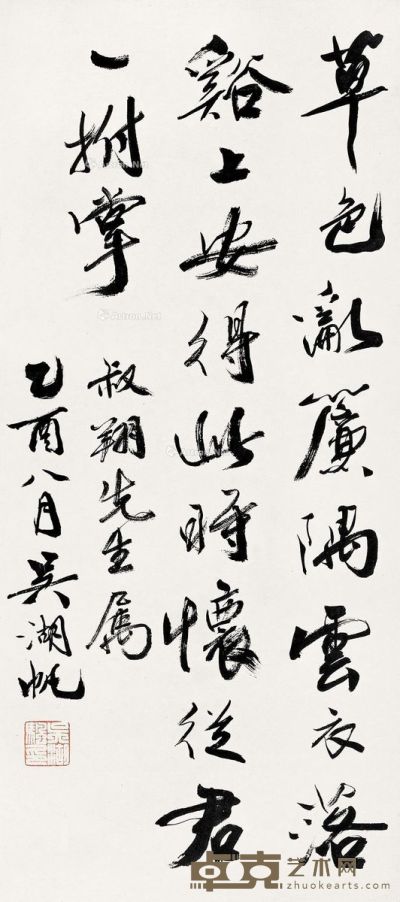 草色瀛簾隅雲衣落
谿上安得此時懷從君
一拊掌
叔翔先生属
乙酉八月吴湖帆
Artron.Net
卓克艺术网
zhuokearts.com